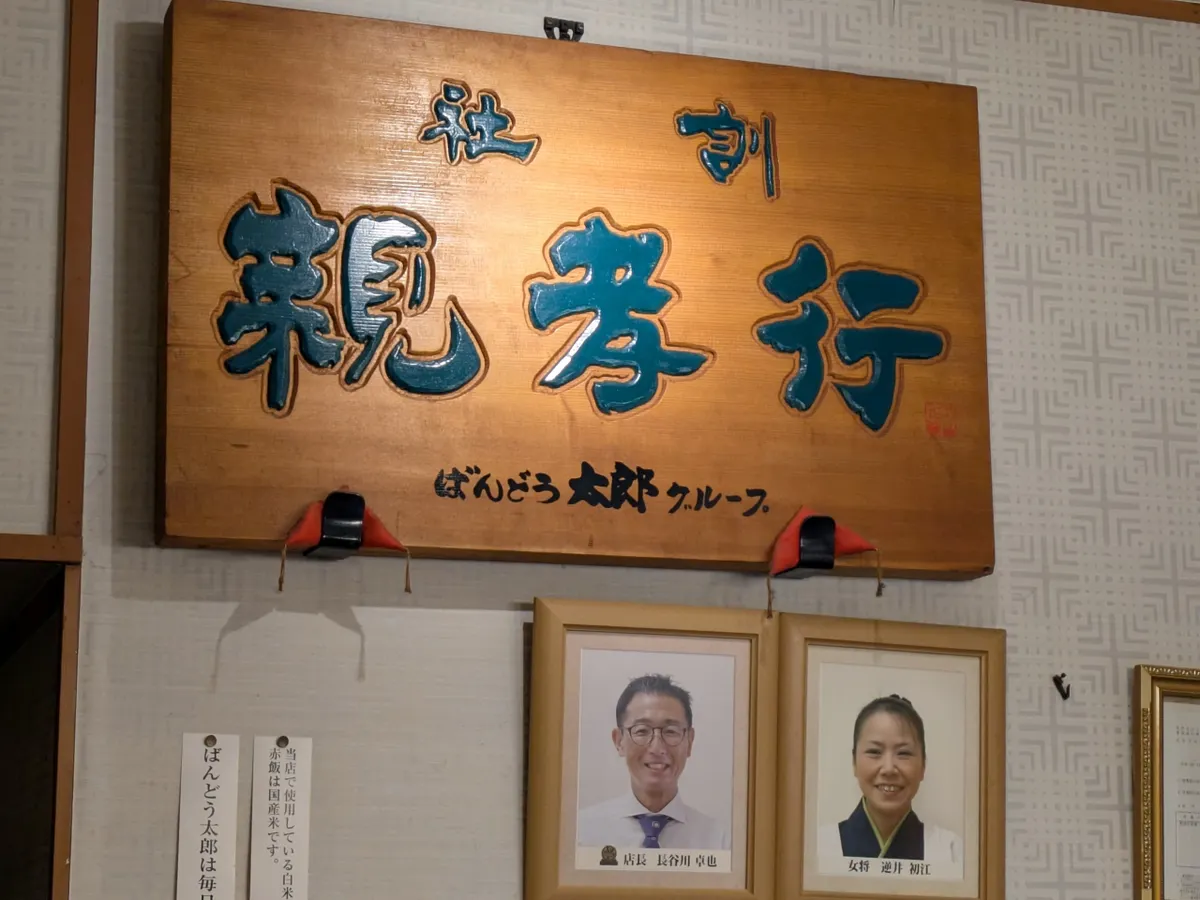 社訓
親孝行
ばんどう太郎グループ
店長 長谷川 卓也
女将 逆井 初江
当店で使用している白米
赤飯は国産米です。
ばんどう太郎は毎日